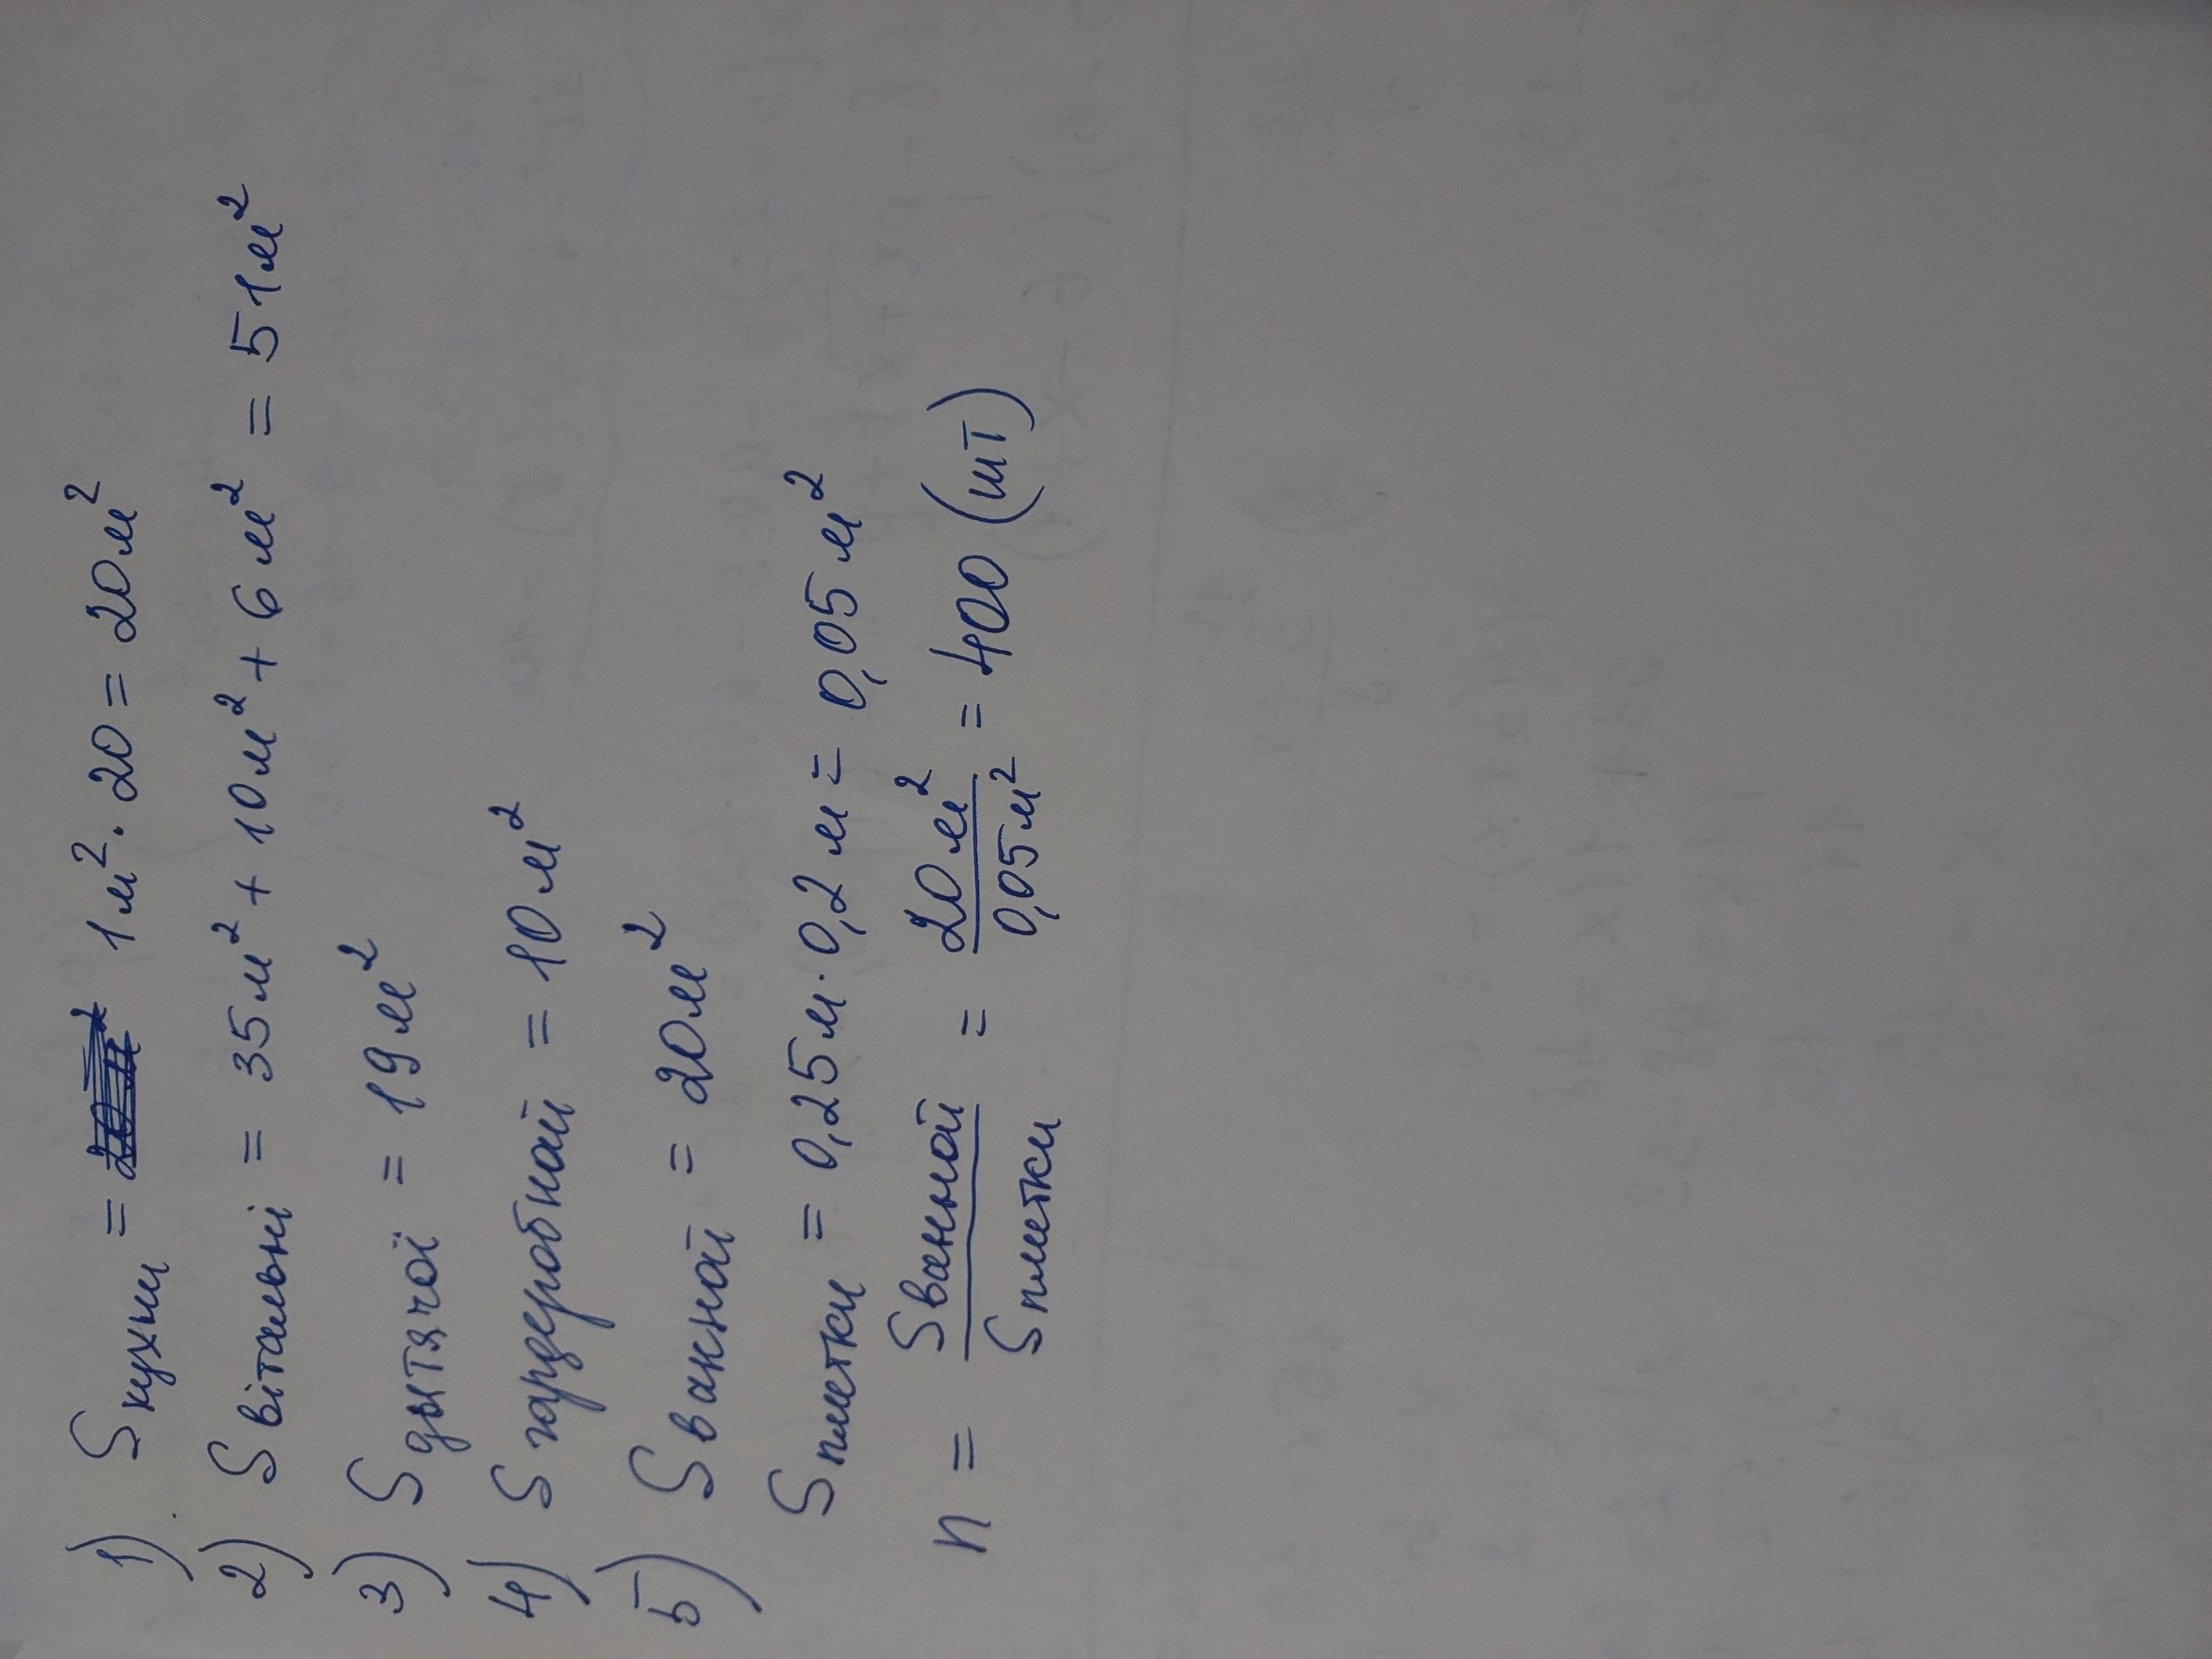 1) Sкухни = 1м². 20 = 20м²
2) Sвітальні = 35м² + 10м² + 6м² = 51м²
3) Sдытячої = 19м²
4) Sгардеробной = 10м²
5) Sванной = 20м²
Sплетки = 0,25м · 0,2м = 0,05м²
n = Sванной / Sплетки = 20м² / 0,05м² = 400 (шт)